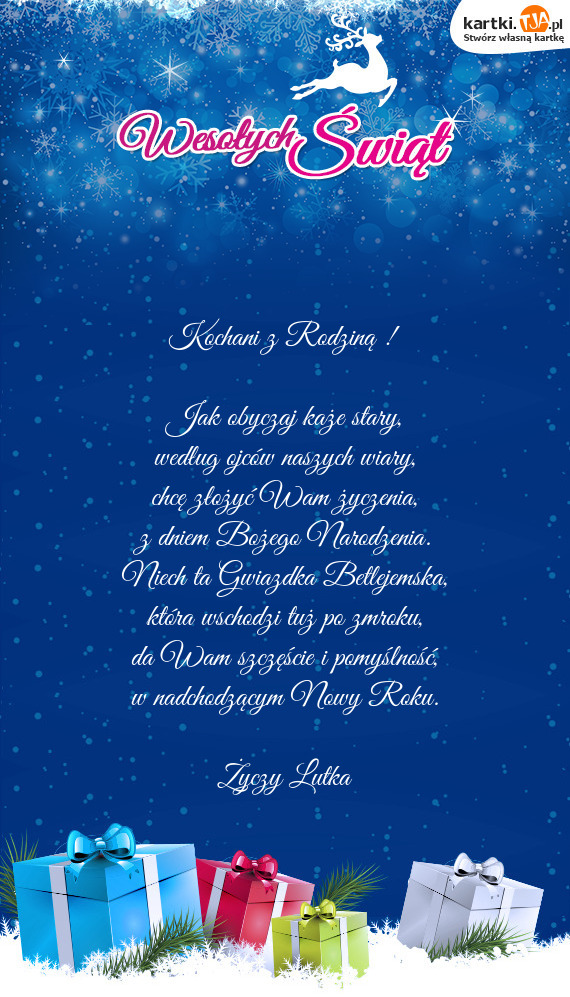 kartki.TJA.pl
Stwórz własną kartkę
Wesołych Świąt
Kochani z Rodziną !
Jak obyczaj każe stary,
według ojców naszych wiary,
chcę złożyć Wam życzenia,
z dniem Bożego Narodzenia.
Niech ta Gwiazdka Betlejemska,
która wschodzi tuż po zmroku,
da Wam szczęście i pomyślność,
w nadchodzącym Nowy Roku.
Życzy Lutka